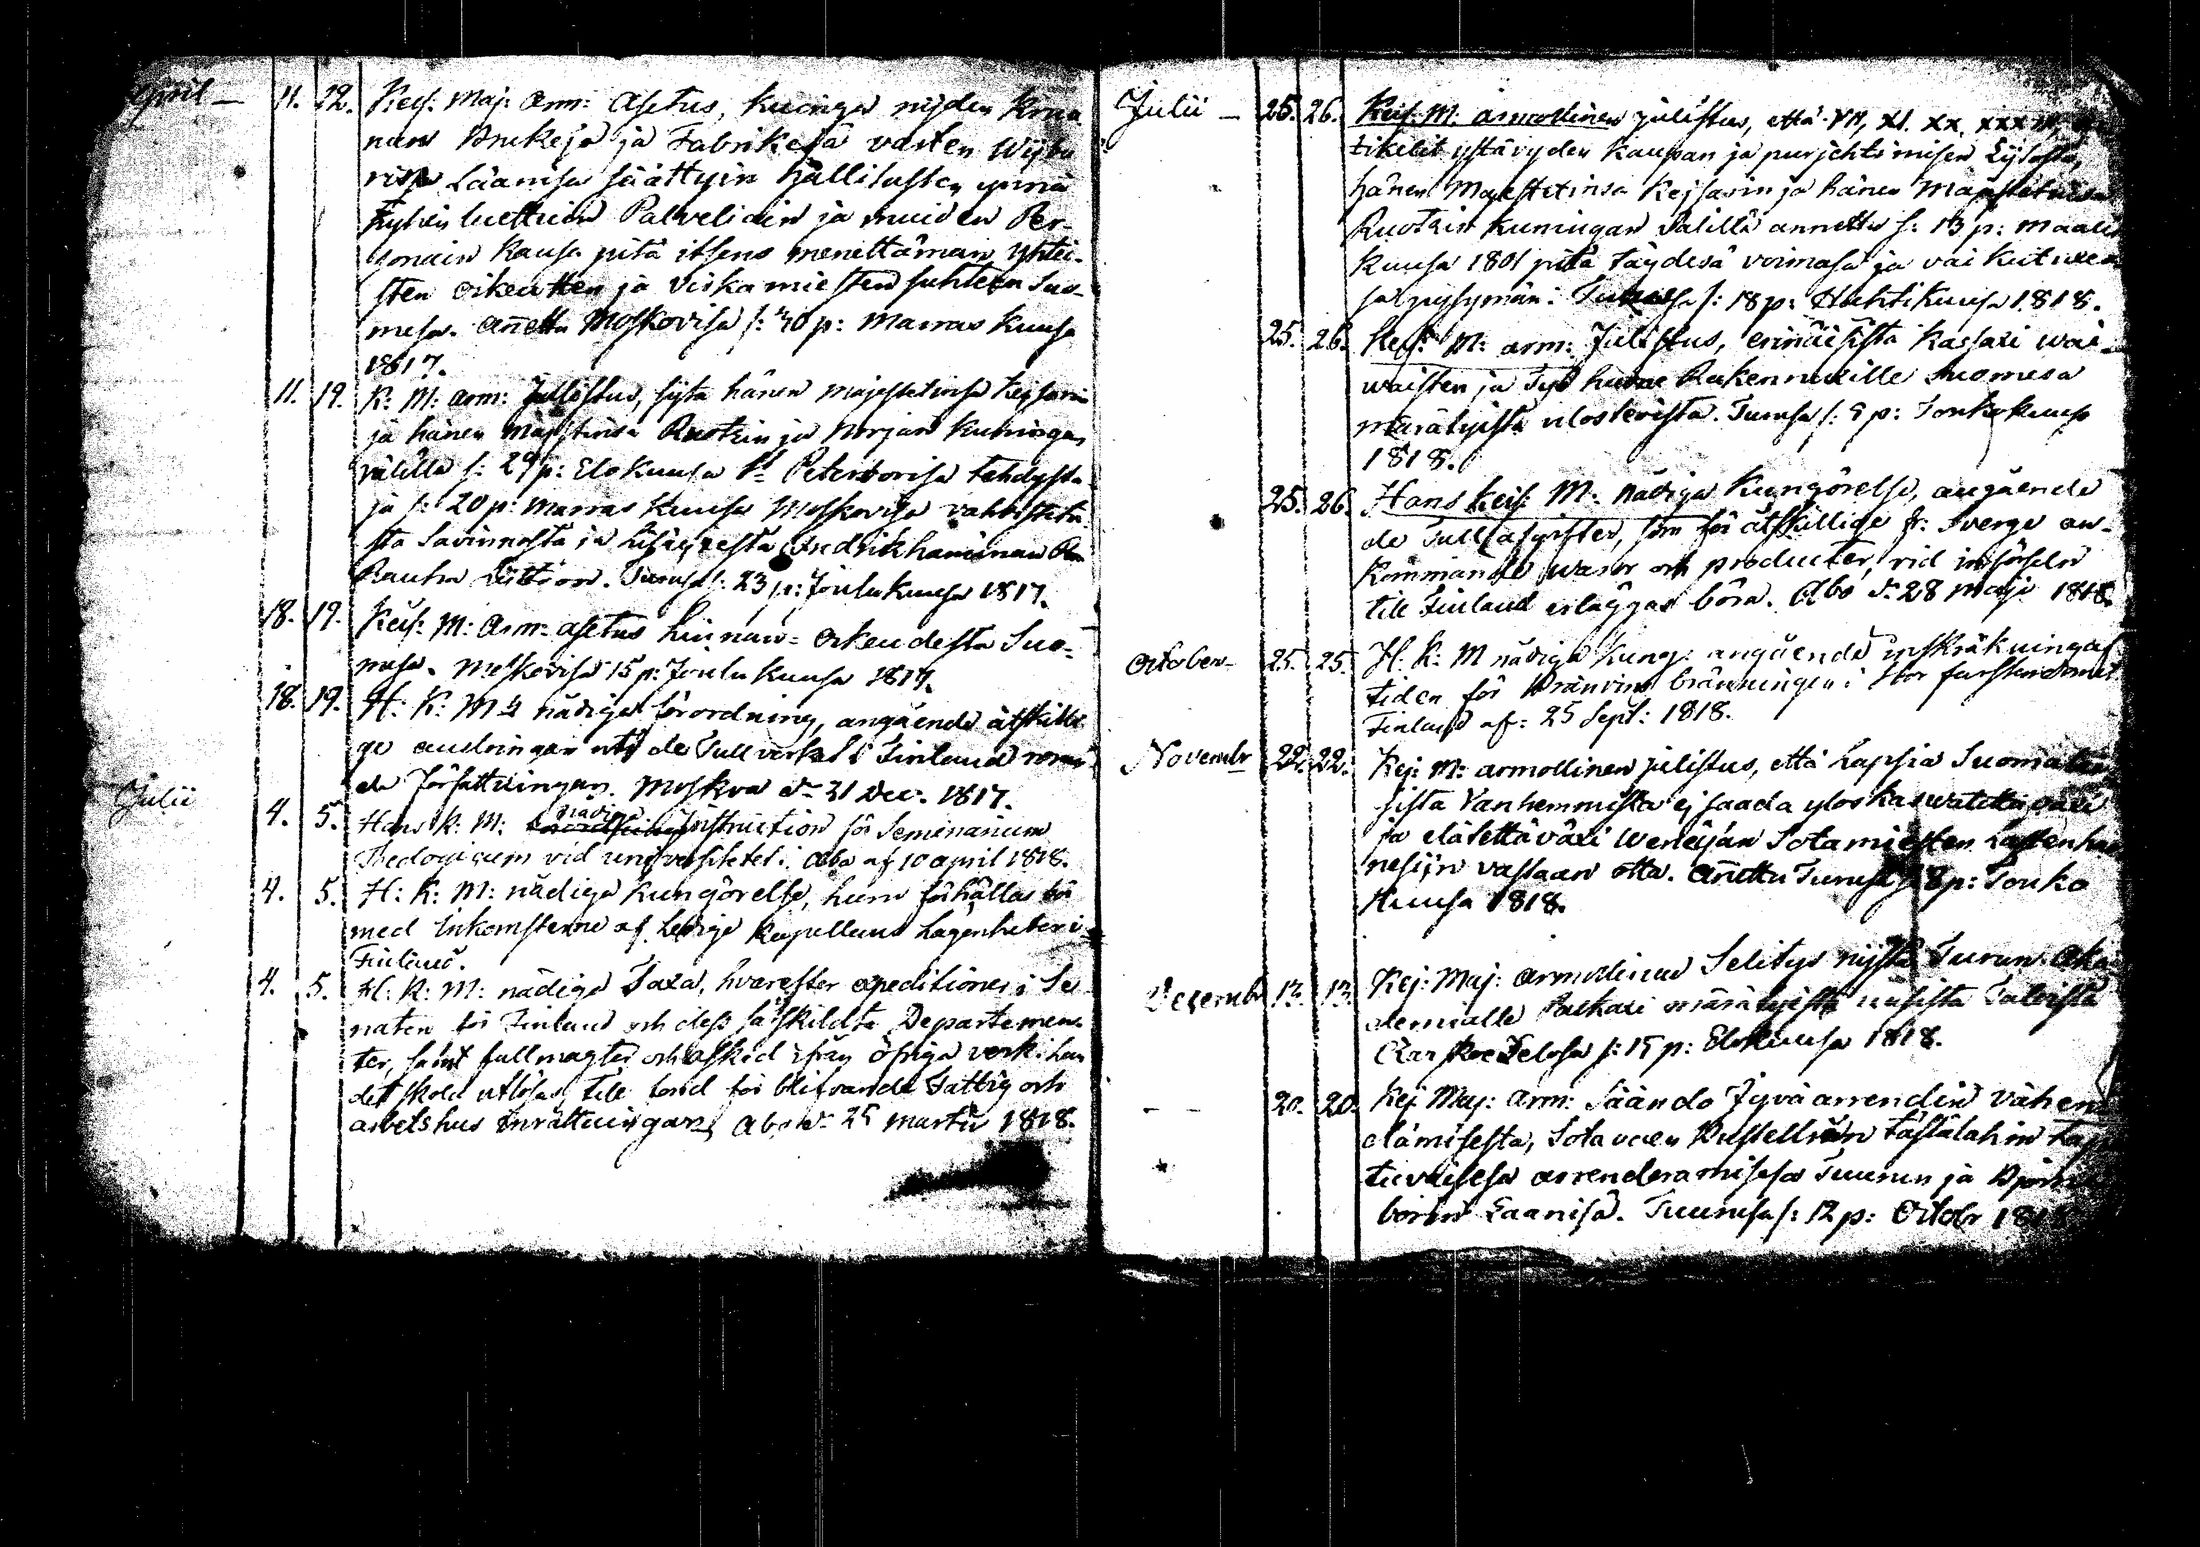 April — 11. 22. Keis: Maj: Arm: Asetus, kuinga nijden Kruu
nun Brukeisa ja Fabrikeisa vasten Wijbu
risa Läänisä säättyin hallitusten ynnä
nyhin luettuin Palvelioin ja muiden Per-
sonain kansa pitä itsens menettämän yhtei-
sten oikeutten ja Viskamiesten suhteen Suo-
mesa. Annettu Moskovisa s: 30 p: Marras kuusa
1817.
11. 19. K: M: Arm: Julistus, sijtä hänen Majestetinsa Keysarin
ja hänen Majestetinsä Ruotzin ja Norjan Kuningan
välillä s: 29 p: Elokuusa St Petersborisa tehdystä
ja s: 20 p: Marras kuusa Moskovisa vahvistetu
sta Savinnosta ja lisäyxestä Fredrikhaminan
Rauha Liittoon. Turusa s: 23 p: Joulukuusa 1817.
18. 19. Keis: M: Arm: asetus Linnan= oikeudesta Suo-
mesa. Moskovisa 15 p: Joulu kuusa 1817.
18. 19. H: K: Mts nådiga förordning, angående åtskilli
ge ändringar uti de Tullverket i Finland röran
de författningar. Moskva d. 31 Dec. 1817.
Julii 4. 5. Hans K: M: nådiga Instruction för Seminarium
Theologicum vid universitetet i Åbo af 10 april 1818.
4. 5. H: K: M: nådiga Kungörelse, huru förhållas bör
med Inkomsterne af ledige Kapellans Lägenheter i
Finland.
4. 5. H: K: M: nådiga Taxa, hvarefter expeditioner i Se
naten för Finland och dess särskildta Departemen-
ter, samt fullmagter och afsked ifrån öfriga verk: hun
det skola utlösas, till fond för blifvande Fattig och
arbetshus Inrättningar. Åbo d. 25 Martii 1818.
Julii — 25. 26. Keis: M: armollinen julistus, että VII, XI. XX. XXX
tikelit ystävyden kaupan ja purjehtimisen Lijtosta,
hänen Majestetinsa Kejsarin ja hänen Majestetinsa
Ruotzin Kuningan Välillä annettu s: 13 p: Maalis
kuusa 1801 pitä täydesä voimasa ja vaikutuxe
sa pysymän: Turusa s: 18 p: Huhtikuusa 1818.
25. 26. Keis: M: arm: Julistus, erinäisistä Kassaxi wai-
waisten ja Työ huone Rakennuxille Suomesa
märätyistä ulosteoista. Turusa s: 9 p: Toukokuusa
1818.
25. 26. Hans Keis: M: Nådiga Kungörelse, angående
de Tull afgifter, som för åtskillige fr: Sverge an-
kommande waror och producter, vid införseln
till Finland erläggas böra. Åbo d. 28 Maji 1818.
October — 25. 25. H: K: M nådiga Kung: angående inskräkning af
tiden för Bränvins bränningen i Stor furstendömet
Finland af: 25 Sept: 1818.
Novembr 22. 22. Kej: M: armollinen julistus, että Lapsia Suomalai
sista Vanhemmista ej saada yloskaswatettavaxi
ja elätettäväxi Wenäjän Sotamiesten Lastenhuo
nesijn vastaan otta. Annettu Turusa s: 8 p: Touko
Kuusa 1818.
Decembr 13. 13. Kej: Maj: armollinen Selitys nijstä Turun Aka
demialle Palkaxi märätyistä uusista Taloista
Czarskoe Selosa s: 15 p: Elokuusa 1818.
— — 20. 20. Kej Maj: Arm: Säändö Jyvä arrendin vähen
dämisestä, Sotavaen Bustellien
tuvaisesa arrenderamisesa Tuurun ja Björne
borin Läänisä. Tuurusa s: 12 p: Octobr 1818